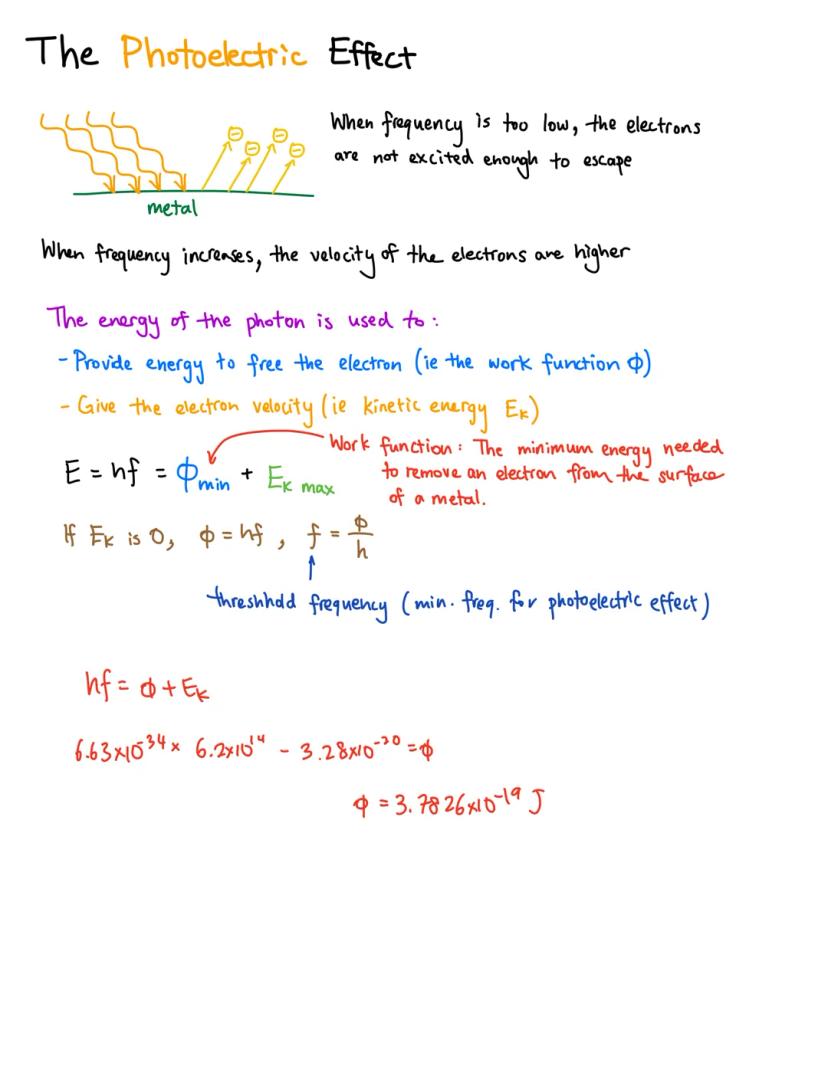 The Photoelectric Effect
When frequency is too low, the electrons
are not excited enough to escape
metal
When frequency increases, the velocity of the electrons are higher
The energy of the photon is used to:
- Provide energy to free the electron (ie the work function ϕ)
- Give the electron velocity (ie kinetic energy Eₖ)
Work function: The minimum energy needed
to remove an electron from the surface
of a metal.
E = hf = ϕmin + Eₖ max
If Eₖ is 0, ϕ = hf, f = ϕ/h
threshhold frequency (min. freq. for photoelectric effect)
hf = ϕ + Eₖ
6.63×10⁻³⁴ × 6.2×10¹⁴ - 3.28×10⁻²⁰ = ϕ
ϕ = 3.7826×10⁻¹⁹ J